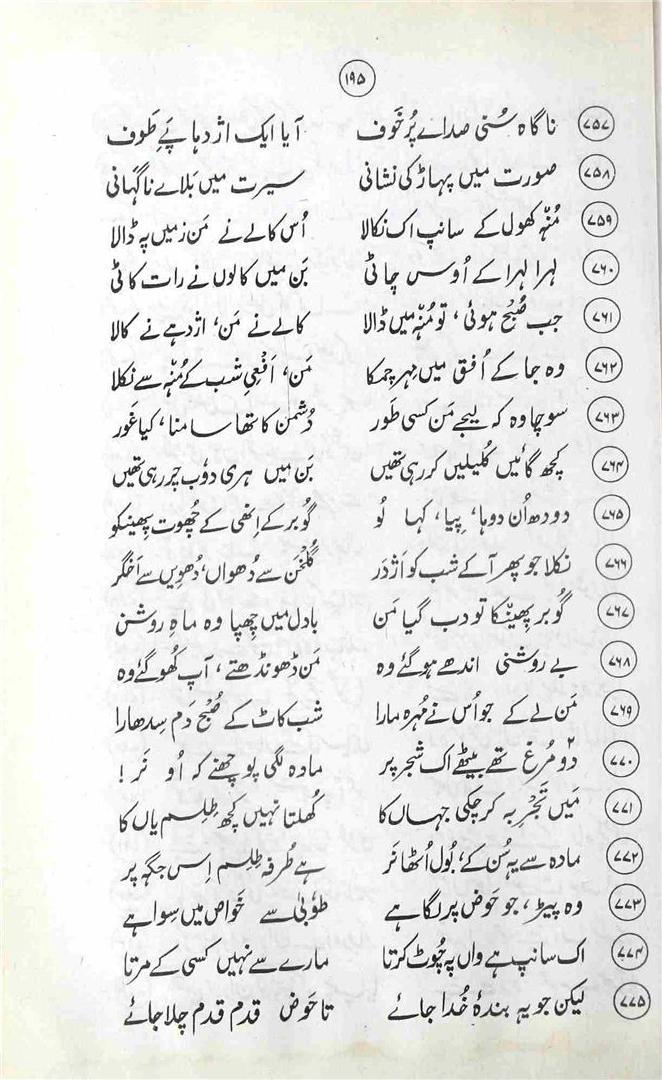 ۱۹۵
۷۵۷ ناگاہ سُنی صدائے پُر خَوف آیا ایک اژدہا پَے طَوف
۷۵۸ صورت میں پہاڑ کی نشانی سیرت میں بَلاے ناگہانی
۷۵۹ مُنہ کھول کے سانپ اک نکالا اُس کالے نے مَن زمیں پہ ڈالا
۷۶۰ لہرا لہرا کے اُوس چاٹی بَن میں کالوں نے رات کاٹی
۷۶۱ جب صُبح ہوئی، تو مُنہ میں ڈالا کالے نے مَن، اژدہے نے کالا
۷۶۲ وہ جا کے اُفق میں مہر چمکا مَن، اَفعیِ شب کے مُنہ سے نکلا
۷۶۳ سوچا وہ کہ لیجے مَن کسی طَور دُشمن کا تھا سامنا، کیا غَور
۷۶۴ کچھ گائیں کُلیلیں کر رہی تھیں بَن میں ہری دُوب چر رہی تھیں
۷۶۵ دودھ اُن دوہا، پِیا، کہا لُو گوبر کے اِنھی کے چھوت پھینکو
۷۶۶ نکلا جو پھر آ کے شب کو اژدَر گُلخَن سے دُھواں، دُھویں سے اَخگر
۷۶۷ گوبر پھینکا تو دب گیا مَن بادل میں چھپا وہ ماہِ روشن
۷۶۸ بے روشنی اندھے ہو گئے وہ مَن ڈھونڈھتے، آپ کھو گئے وہ
۷۶۹ مَن لے کے جو اُس نے مُہرہ مارا شب کاٹ کے صُبح دَم سِدھارا
۷۷۰ دو ۲ مُرغ تھے بیٹھے اک شجر پر مادہ لگی پوچھنے کہ او نَر!
۷۷۱ مَیں تَجرِبہ کر چکی جہاں کا کُھلتا نہیں کچھ طِلِسم یاں کا
۷۷۲ مادہ سے یہ سُن کے، بُول اُٹھا نَر ہے طُرفہ طِلِسم اِس جگہ پر
۷۷۳ وہ پیڑ، جو حَوض پر لگا ہے طُوبیٰ سے خَواص میں سِوا ہے
۷۷۴ اک سانپ ہے واں پہ چُوٹ کرتا مارے سے نہیں کسی کے مرتا
۷۷۵ لیکن جو یہ بندۂ خُدا جائے تا حَوض قدم قدم چلا جائے